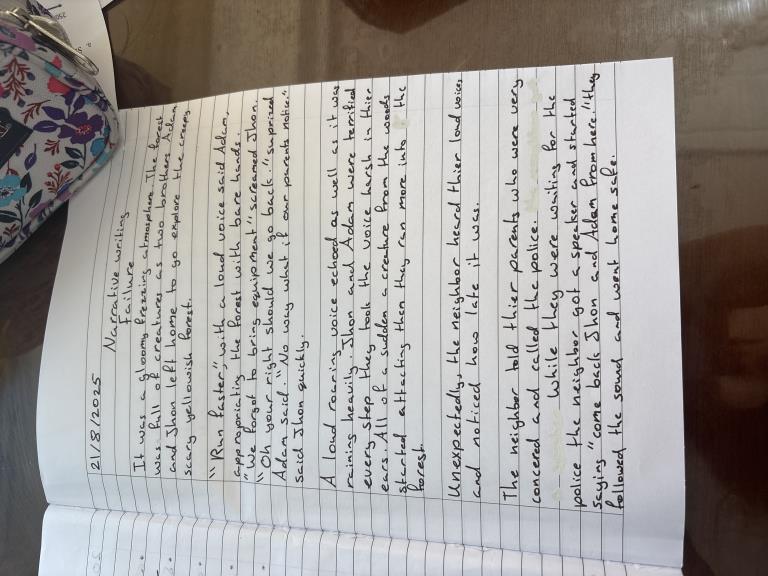 21/8/2025
Narrative writing
Failure
It was a gloomy frezzing atmosphere. The forest
was full of creatures as two brothers Adam
and Jhon left home to go explore the creepy
scary yellowish forest.
"Run faster", with a loud voice said Adam,
appropriating the forest with bare hands.
"We forgot to bring equipment" screamed Jhon.
"Oh your right should we go back." surprised
Adam said. "No way what if our parents notice."
said Jhon quickly.
A loud roaring voice echoed as well as it was
raining heavily. Jhon and Adam were terrified
every step they took the voice harsh in thier
ears. All of a sudden a creature from the woods
started attacting then they ran more into the
forest.
Unexpectedly, the neighbor heard thier loud voices
and noticed how late it was.
The neighbor told thier parents who were very
concered and called the police.
While they were waiting for the
police the neighbor got a speaker and started
saying "come back Jhon and Adam from here." they
followed the sound and went home safe.